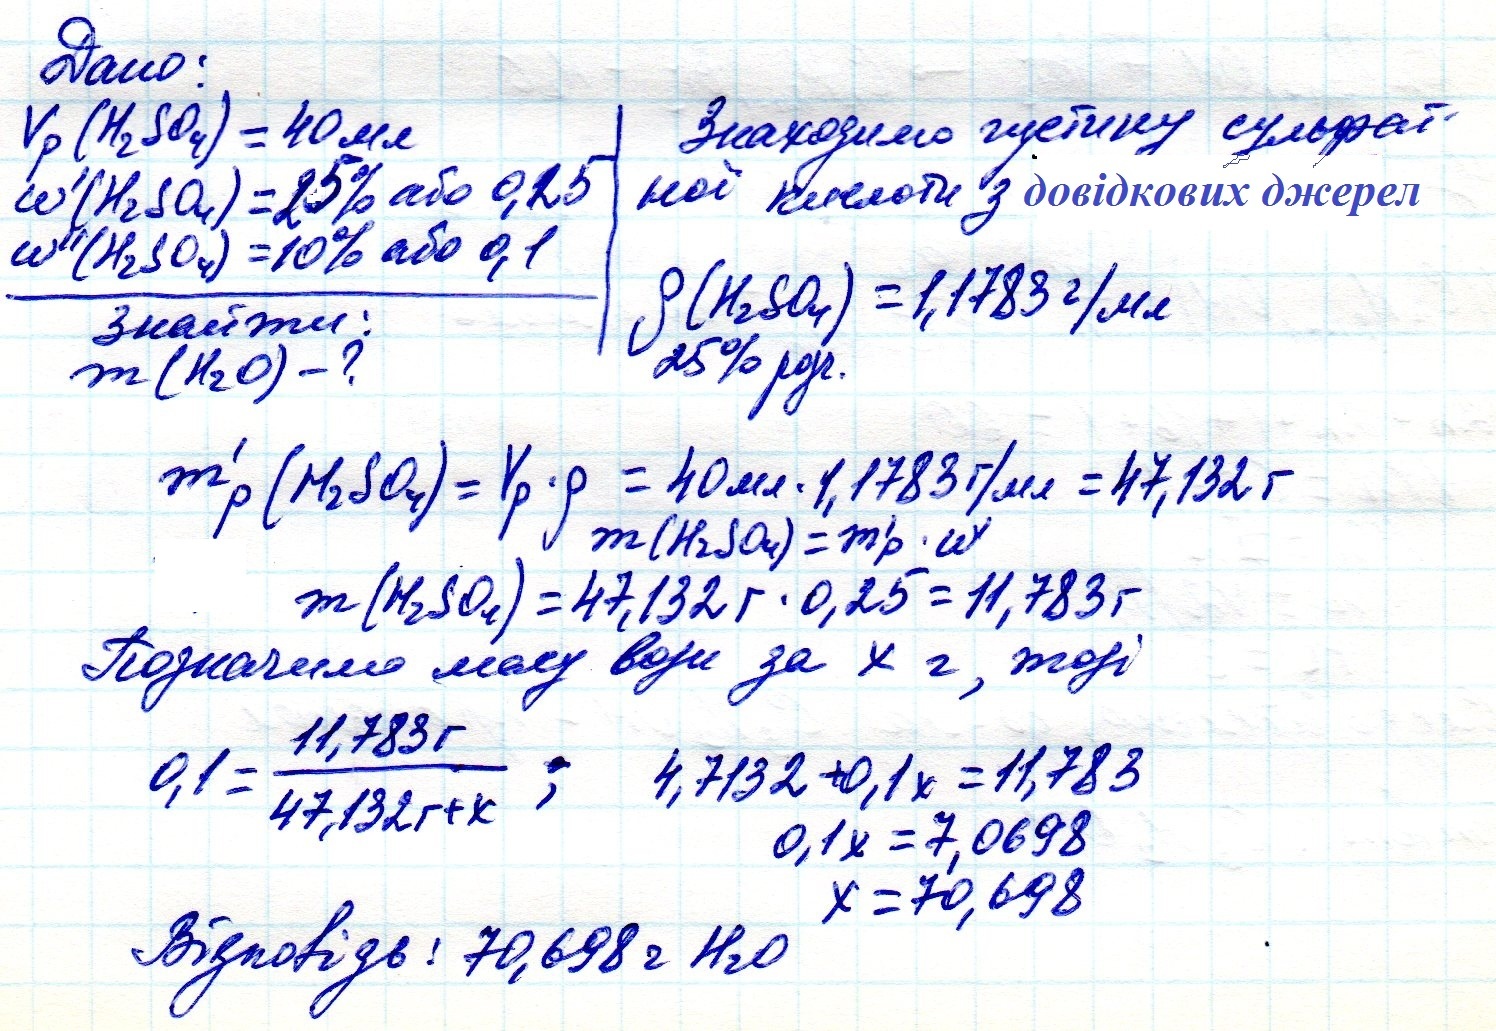 Дано:
Vр(H₂SO₄) = 40 мл
w'(H₂SO₄) = 25% або 0,25
w''(H₂SO₄) = 10% або 0,1
Знайти:
m(H₂O) – ?
Знаходимо густину сульфат-
ної кислоти з довідкових джерел
ρ(H₂SO₄) = 1,1783 г/мл
25% розч.
m'р(H₂SO₄) = Vр · ρ = 40 мл · 1,1783 г/мл = 47,132 г
m(H₂SO₄) = m'р · w'
m(H₂SO₄) = 47,132 г · 0,25 = 11,783 г
Позначимо масу води за x г, тоді
0,1 = 11,783 г / 47,132 г + x ;
4,7132 + 0,1x = 11,783
0,1x = 7,0698
x = 70,698
Відповідь: 70,698 г H₂O